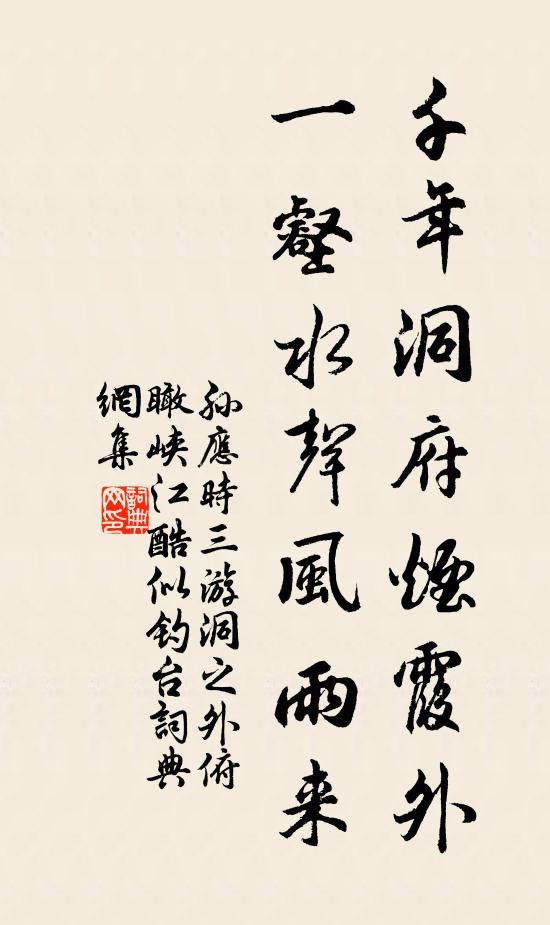 千年洞府煙霞外
一壑水聲風雨来
孫應時三游洞之外俯
瞰峡江酷似釣台詞典
網集
詞典
网印